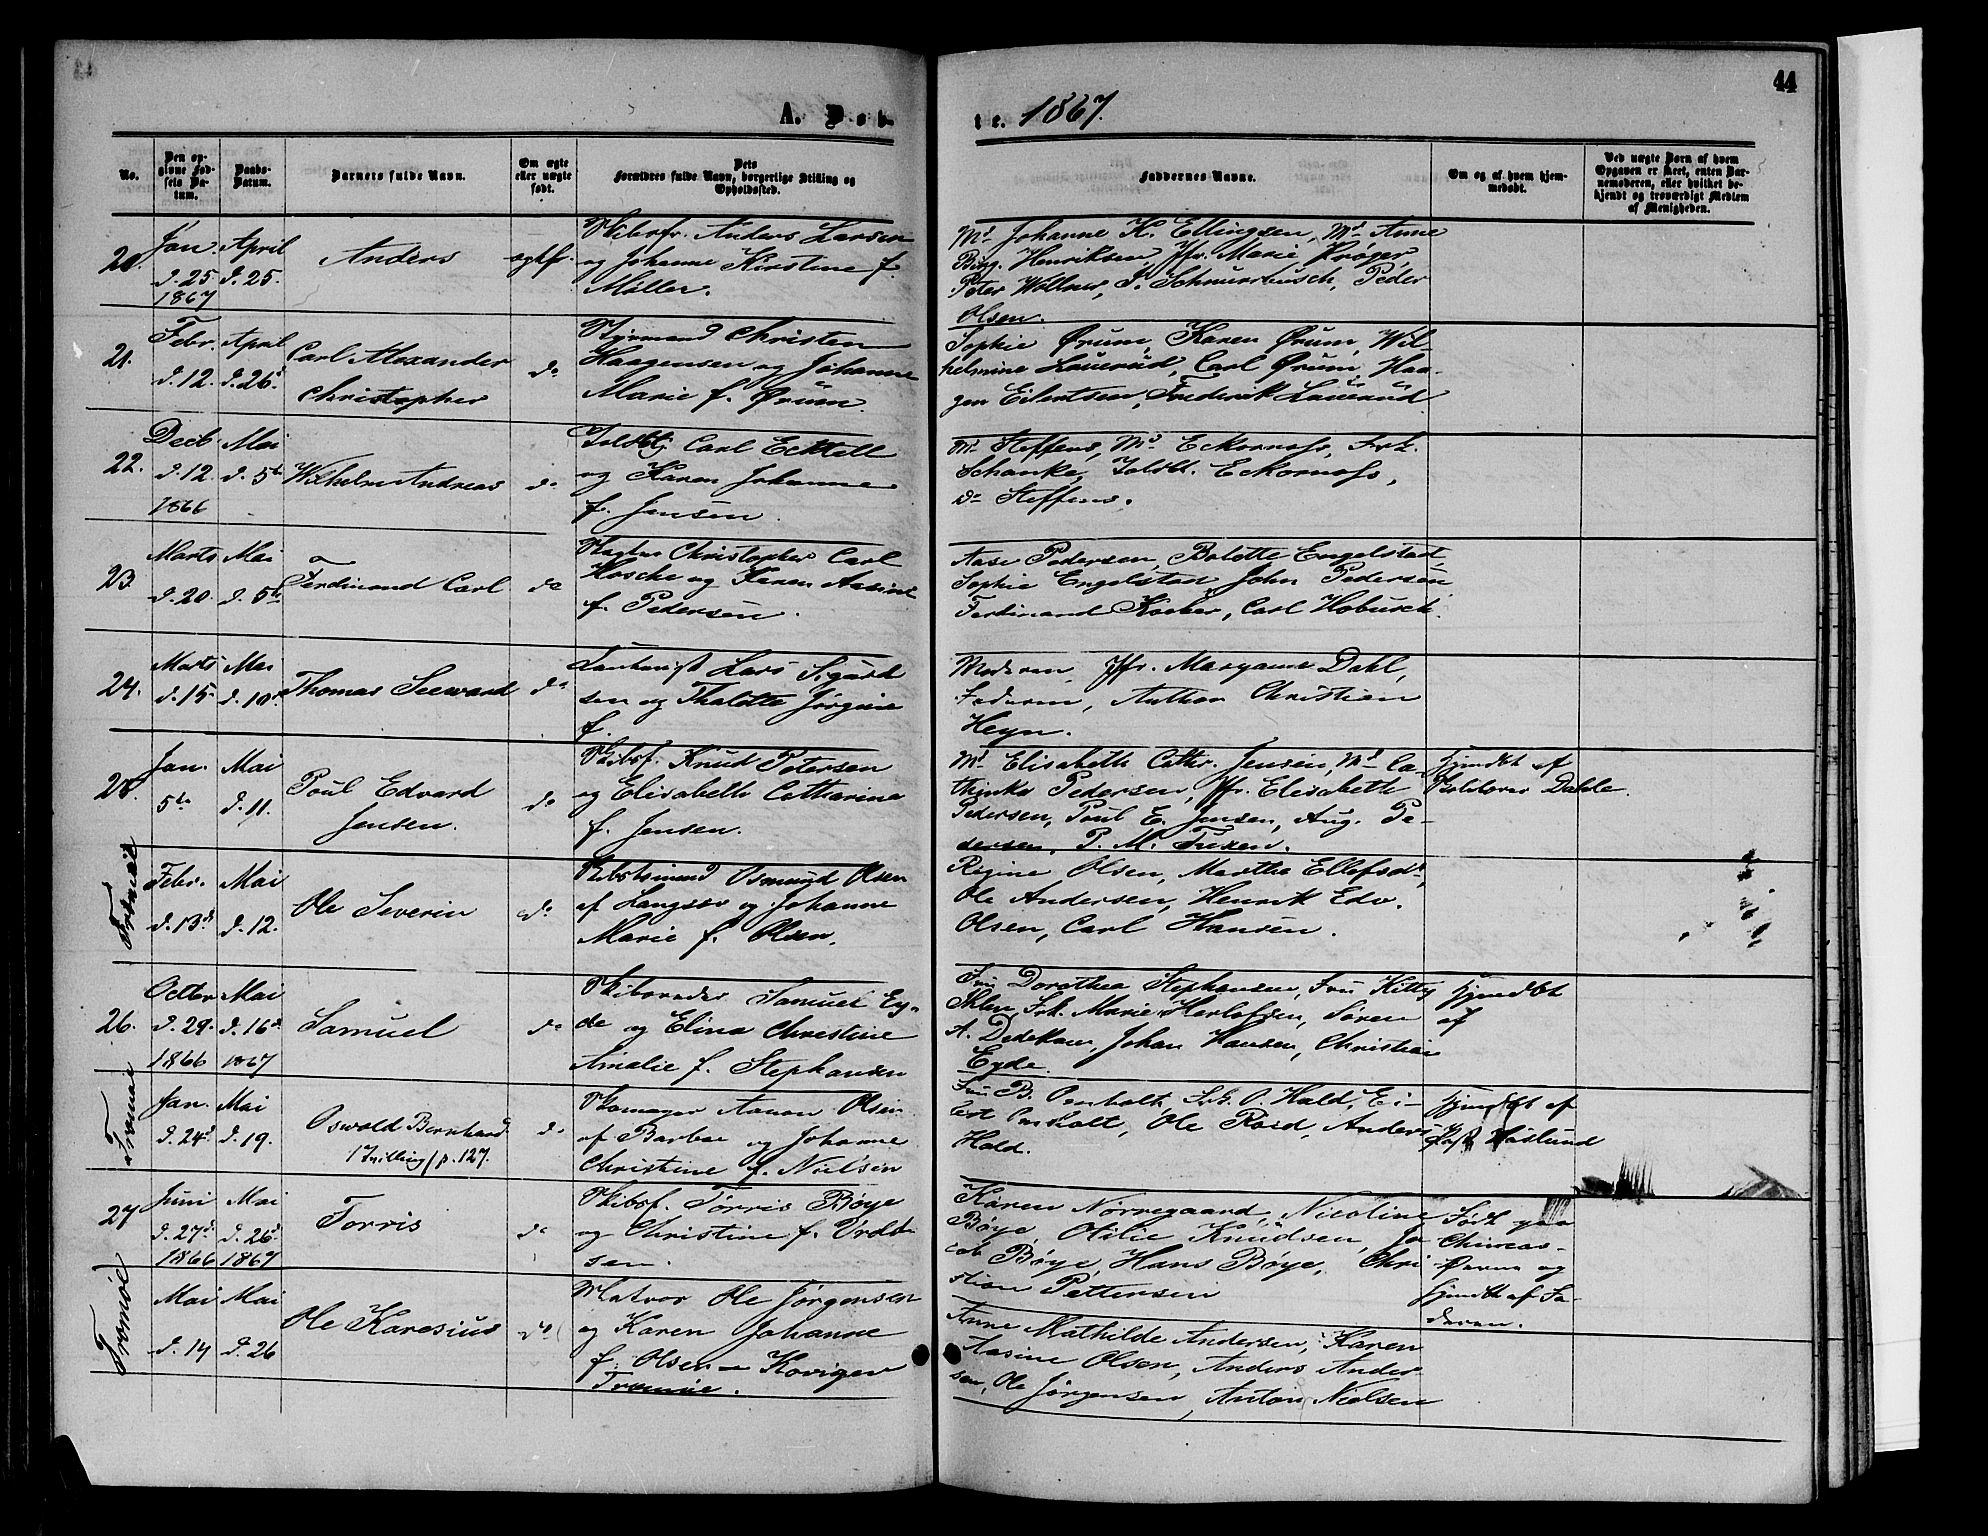 44
A. Døb-
te. 1867.
No.
Den op-
givne Fød-
sels Da-
tum.
Daabs-
Datum.
Barnets fulde Navn.
Om ægte
eller uægte
født.
Dets
Forældres fulde Navn, borgerlige Stilling og
Opholdssted.
Faddernes Navne.
Om og af hvem hjem-
medøbt.
Ved uægte Børn af hvem
Opgaven er skeet, enten Bar-
nemoderen, eller hvilket be-
kjendt og troværdigt Medlem
af Menigheden.
20.
Jan.
d. 25
1867
April
d. 25.
Anders
ægtef.
Skibsfr. Anders Larsen
og Johanne Kirstine f.
Møller.
Md. Johanne K. Ellingsen, Md. Anne
Birg. Henriksen, Jfr. Marie Krøger
Peter Wollner, Schnurrbusch, Peder
Olsen.
21.
Febr.
d. 12.
April
d. 26.
Carl Alexander
Christopher
do
Styrmand Christen
Haagensen og Johanne
Marie f. Ørum.
Sophie Ørum, Karen Ørum, Wil-
helmine Lauerud, Carl Ørum, Haa-
gen Eilertsen, Frederik Lauerud
22.
Decb.
d. 12.
1866
Mai
d. 5te
Wilhelm Andreas
do
Carl Ecktell
og Karen Johanne
f. Jensen.
Md. Steffens, Md. Eckornæss, Frk.
Schanke, Toldbt. Eckornæss,
do Steffens.
23.
Marts
d. 20.
Mai
d. 5te
Ferdinand Carl
do
Christopher Carl
Kosche og Karen Aasine
f. Pedersen.
Aase Pedersen, Bolette Engelstad,
Sophie Engelstad John Pedersen
Ferdinand Kosche, Carl Hobusch.
24.
Marts
d. 15.
Mai
d. 10.
Thomas Seeward
do
Lars Sigurd
sen og Thalette Jørgine
f.
Moderen, Jfr. Maryanne Dahl,
Faderen, Anthon Christian
Heyn.
25.
Jan.
5te
Mai
d. 11.
Poul Edvard
Jensen.
do
Skibsf. Knud Petersen
og Elisabeth Catharina
f. Jensen.
Md. Elisabeth Cathr. Jensen, Md. Ca-
thinka Pedersen, Jfr. Elisabeth
Pedersen, Poul E. Jensen, Aug. Pe-
dersen, P. M. Tuxen.
hjemdøbt af
Dahle.
Tromøe
Febr.
d. 13d
Mai
d. 12.
Ole Severin
do
Osmund Olsen
af Langsæv og Johanne
Marie f. Olsen.
Regine Olsen, Martha Ellefsdr.,
Ole Andersen, Henrik Edv.
Olsen, Carl Hansen.
26.
Octbr
d. 29.
1866
Mai
d. 16d
1867
Samuel
do
Skibsreder Samuel Ey-
de og Elina Christine
Amalie f. Stephansen
Fru Dorothea Stephansen, Fru Kitty
Ihlen, Frk. Marie Herlofsen, Søren
A. Dedekam, Johan Hansen, Christian
Eyde.
hjemdøbt
af
Tromøe
Jan.
d. 24d
Mai
d. 19.
Oswald Bernhard
1 Tvilling / p. 127.
do
Skomager Aanon Olsen
af Barboe og Johanne
Christine f. Nielsen
Fru B. Omholt, Frk. O. Hald, Ei-
lert Omholt, Ole Rosd, Anders
Hald.
hjemdøbt af
Høslund
27
Juni
d. 27d.
1866
Mai
d. 26d
1867
Torris
do
Skibsf. Tørris Bøye
og Christine f. Vrold-
sen.
Karen Nørregaard, Nicoline
Bøye, Otilie Knudsen, Ja-
cob Bøye, Hans Bøye, Chri-
stian Pettersen
Født paa
Chincas-
Øerne og
hjemdbt af Fa-
deren.
Tromøe
Mai
d. 14
Mai
d. 26
Ole Karesius
do
Matros Ole Jørgensen
og Karen Johanne
f. Olsen – Kovigen
Tromøe.
Anne Mathilde Andersen, Karen
Aasine Olsen, Anders Ander-
sen, Ole Jørgensen, Anton Nielsen